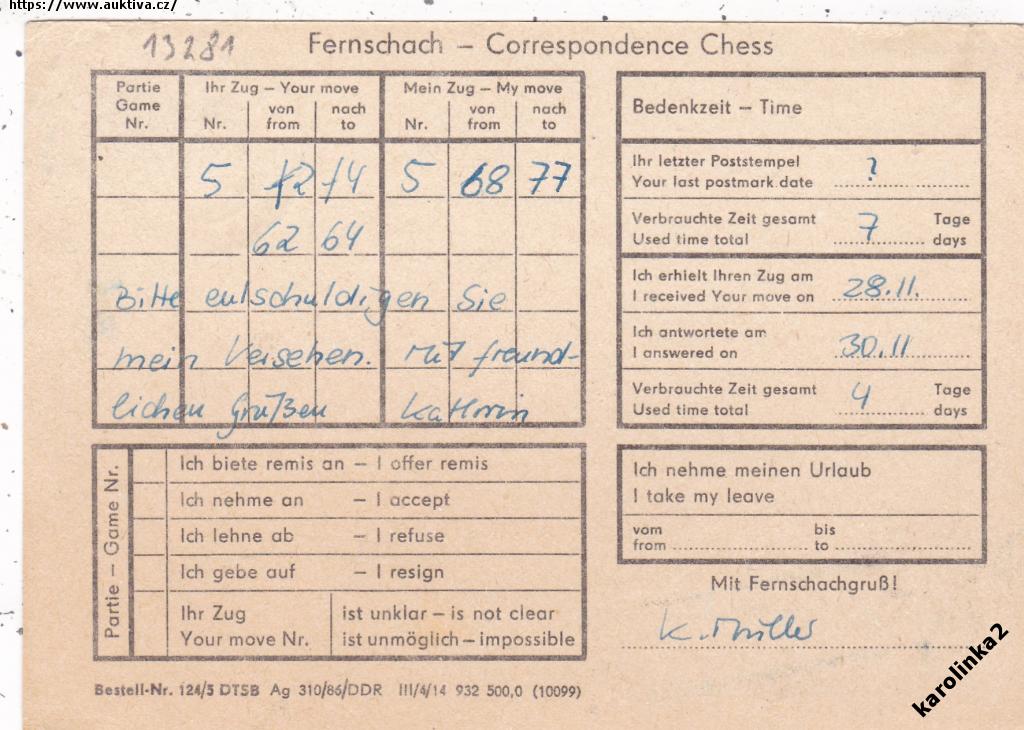 https://www.auktiva.cz/
13281
Fernschach – Correspondence Chess
Partie Game Nr.
Ihr Zug – Your move
Nr. von from nach to
Mein Zug – My move
Nr. von from nach to
5 72 74 5 68 77
62 64
Bitte entschuldigen Sie
mein Versehen. Mit freund-
lichen Grüßen Kathrin
Bedenkzeit – Time
Ihr letzter Poststempel
Your last postmark date ?
Verbrauchte Zeit gesamt Tage
Used time total 7 days
Ich erhielt Ihren Zug am
I received Your move on 28.11.
Ich antwortete am
I answered on 30.11
Verbrauchte Zeit gesamt Tage
Used time total 4 days
Partie – Game Nr.
Ich biete remis an – I offer remis
Ich nehme an – I accept
Ich lehne ab – I refuse
Ich gebe auf – I resign
Ihr Zug ist unklar – is not clear
Your move Nr. ist unmöglich – impossible
Ich nehme meinen Urlaub
I take my leave
vom bis
from to
Mit Fernschachgruß!
K. Müller
Bestell-Nr. 124/5 DTSB Ag 310/86/DDR III/4/14 932 500,0 (10099)
karolinka2